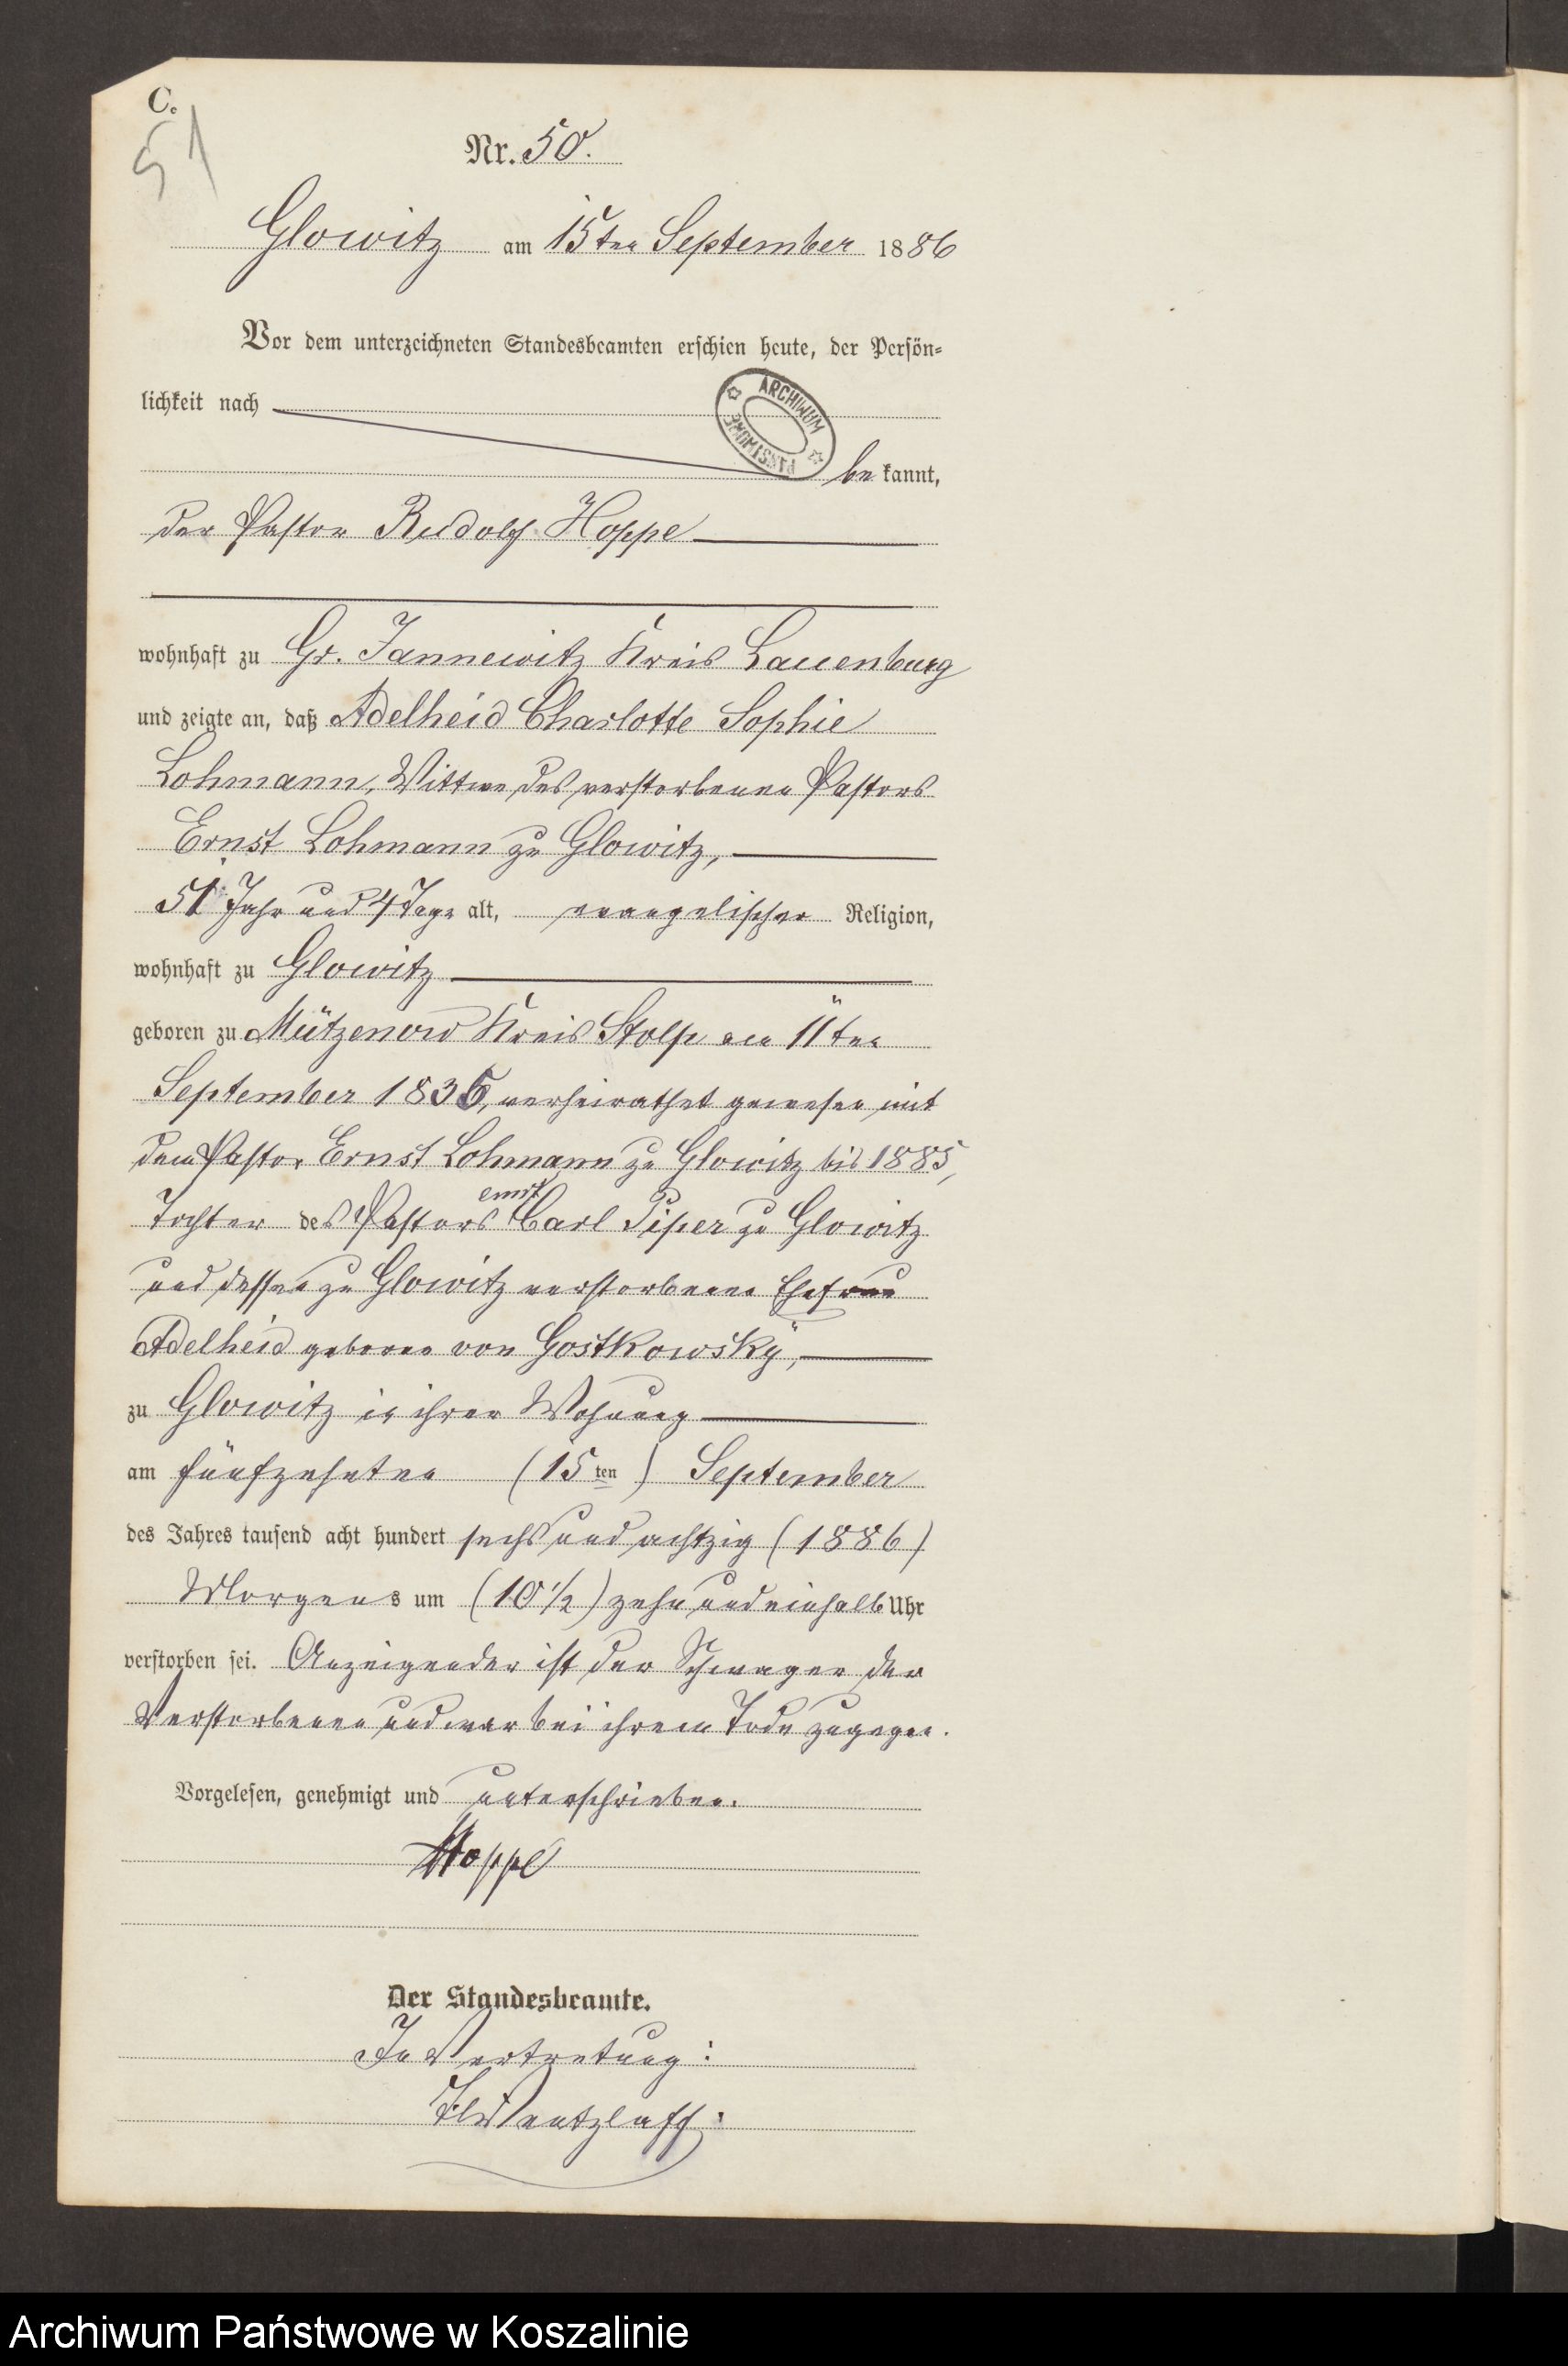 C.
51
Nr. 50.
Glowitz am 15ten September 1886
Vor dem unterzeichneten Standesbeamten erschien heute, der Persön-
lichkeit nach
ARCHIWUM PAŃSTWOWE
bekannt,
der Pastor Rudolf Hoppe
wohnhaft zu Gr. Jannewitz Kreis Lauenburg
und zeigte an, daß Adelheid Charlotte Sophie
Lohmann, Wittwe des verstorbenen Pastors
Ernst Lohmann zu Glowitz,
51 Jahr und 4 Tage alt, evangelischer Religion,
wohnhaft zu Glowitz
geboren zu Mützenow Kreis Stolp am 11ten
September 1835, verheirathet gewesen mit
dem Pastor Ernst Lohmann zu Glowitz bis 1885,
Tochter des Pastors emrt Carl Piper zu Glowitz
und dessen zu Glowitz verstorbene Ehefrau
Adelheid geborne von Gostkowsky,
zu Glowitz in ihrer Wohnung
am fünfzehnten (15ten) September
des Jahres tausend acht hundert sechs und achtzig (1886)
Morgens um (10 1/2) zehn und einhalb Uhr
verstorben sei. Anzeigender ist der Schwager der
Verstorbenen und war bei ihrem Tode zugegen.
Vorgelesen, genehmigt und unterschrieben.
Hoppe
Der Standesbeamte.
In Vertretung:
Wentzlaff.
Archiwum Państwowe w Koszalinie